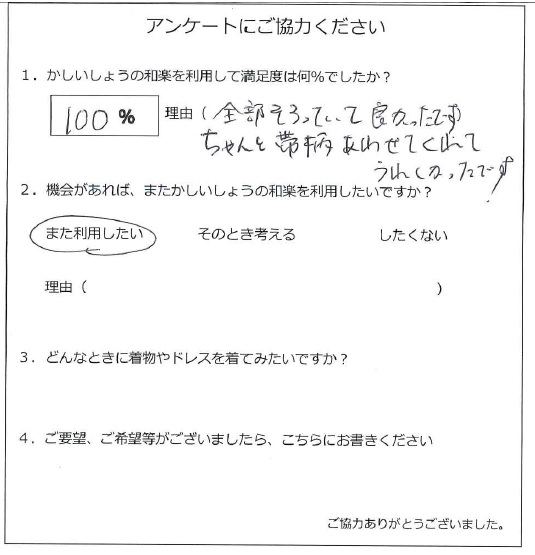 アンケートにご協力ください
1．かしいしょうの和楽を利用して満足度は何％でしたか？
100 %　理由（全部そろっていて良かったです
ちゃんと帯柄あわせてくれて
うれしかったです!
2．機会があれば、またかしいしょうの和楽を利用したいですか？
また利用したい　そのとき考える　したくない
理由（　）
3．どんなときに着物やドレスを着てみたいですか？
4．ご要望、ご希望等がございましたら、こちらにお書きください
ご協力ありがとうございました。